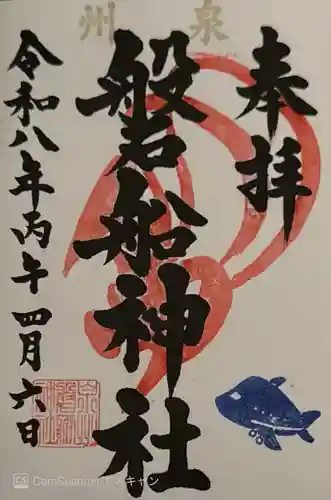 泉州
奉拝
磐船神社
令和八年丙午四月六日
CS CamScanner でスキャン